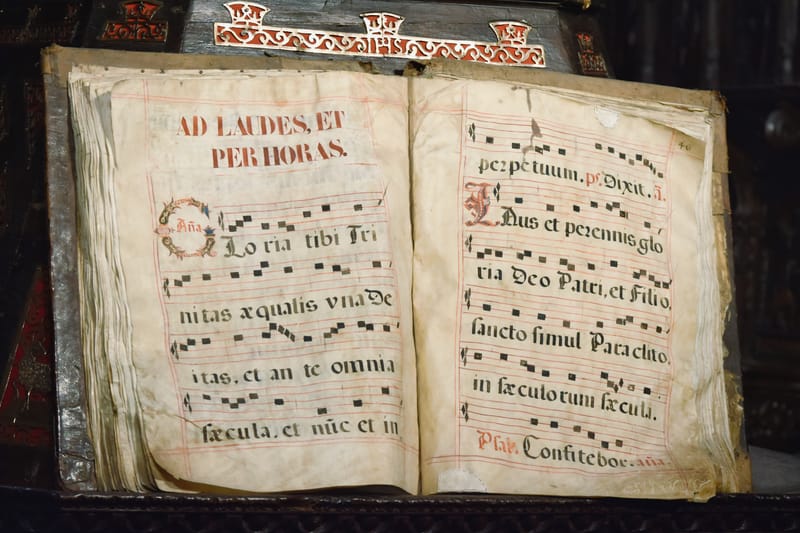 IHS
AD LAUDES, ET
PER HORAS.
Aña
GLo ria tibi Tri
nitas æqualis vna De
itas, et an te omnia
sæcula, et nūc et in
40
perpetuum. ps. Dixit. ã.
LAus et perennis glo
ria Deo Patri, et Filio,
sancto simul Paraclito,
in sæculorum sæcula.
Psal. Confitebor. aña.